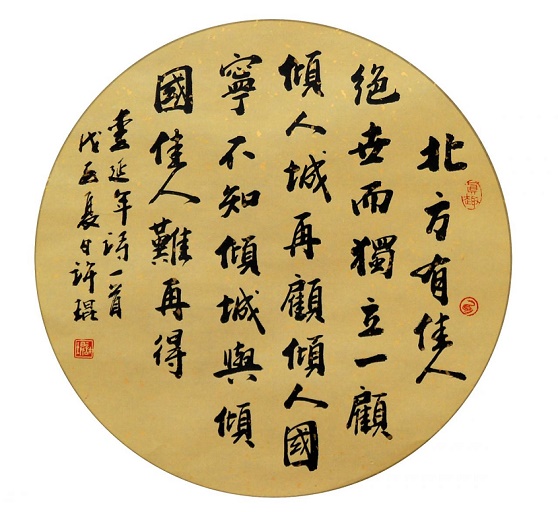 北方有佳人
絕世而獨立一顧
傾人城再顧傾人國
寧不知傾城與傾
國佳人難再得
延年詩一首
戊夏日許琨